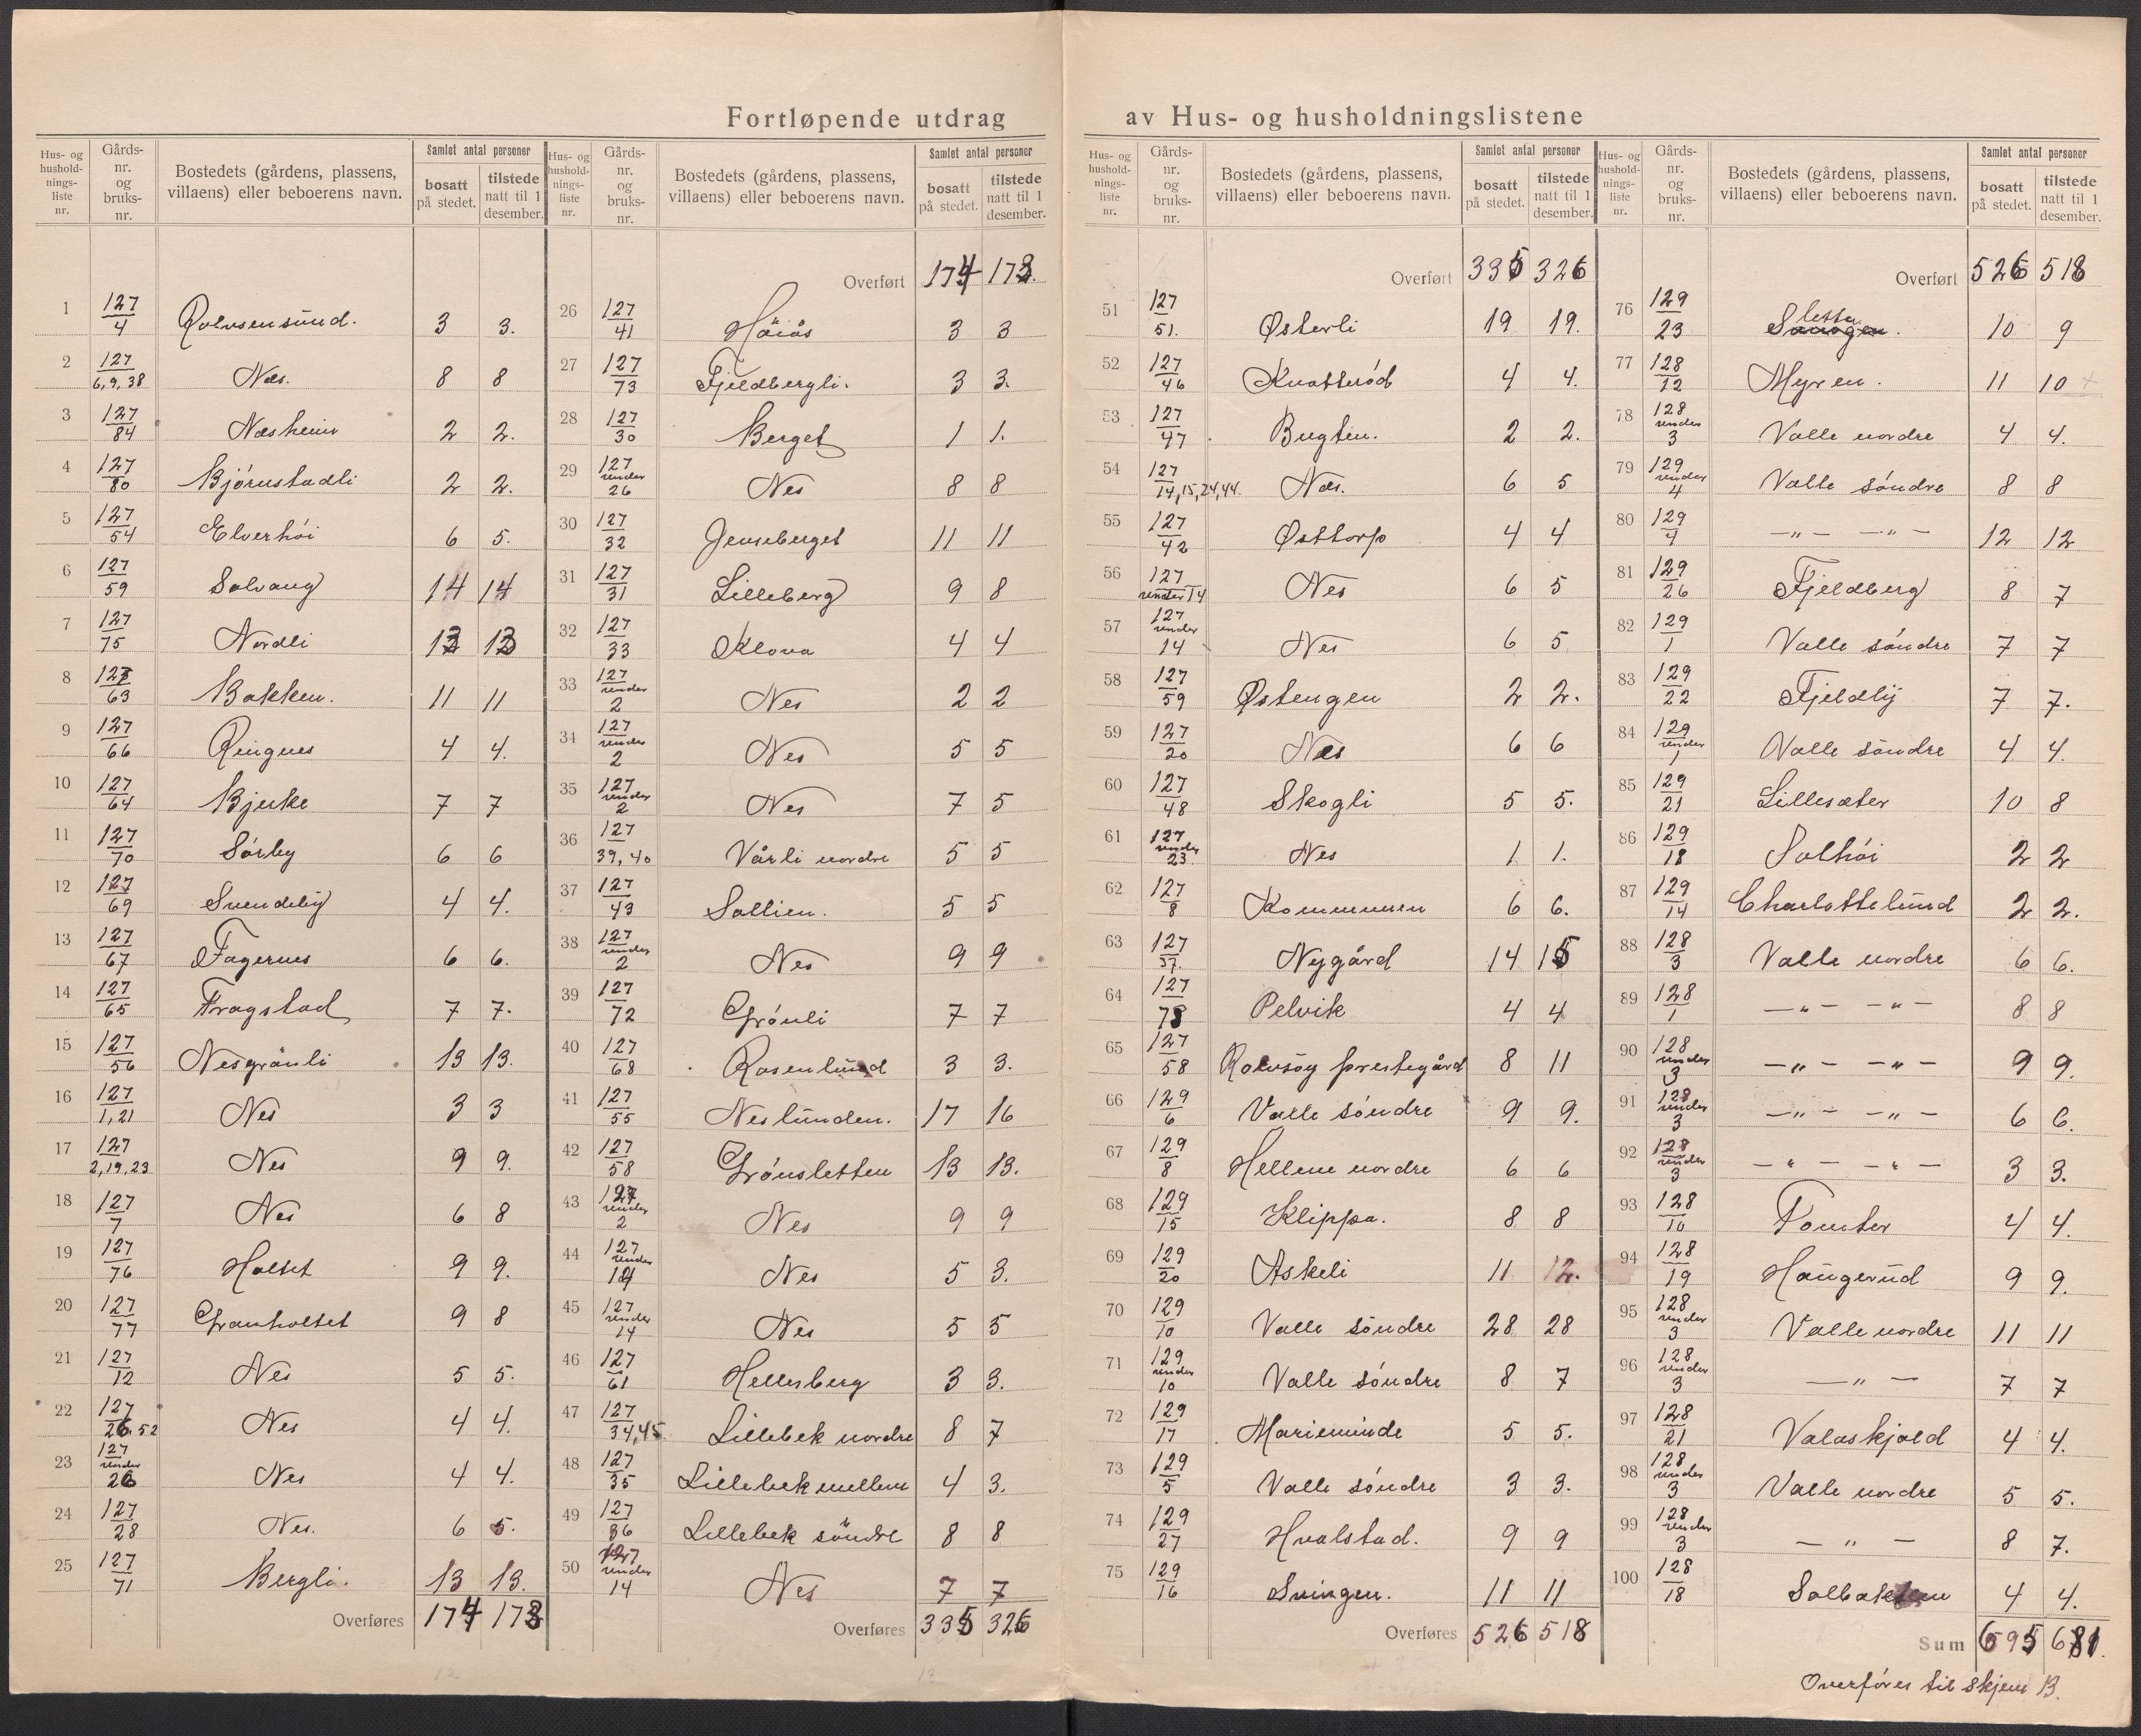 Fortløpende utdrag av Hus- og husholdningslistene
Hus- og husholdnings-liste nr. | Gårds-nr. og bruks-nr. | Bostedets (gårdens, plassens, villaens) eller beboerens navn. | Samlet antal personer: bosatt på stedet. | tilstede natt til 1 desember.
1 127/4 Rolvsensund. 3 3.
2 127/6, 9, 38 Næs. 8 8
3 127/84 Næsheim 2 2.
4 127/80 Bjørnstadli 2 2.
5 127/54 Elverhöi 6 5.
6 127/59 Solvang 14 14
7 127/75 Nordli 13 13
8 127/63 Bakken. 11 11
9 127/66 Ringnes 4 4.
10 127/64 Bjerke 7 7
11 127/70 Sørby 6 6
12 127/69 Svendsby 4 4.
13 127/67 Fagernes 6 6.
14 127/65 Frogstad 7 7.
15 127/56 Nesgrönli 13 13.
16 127/1, 21 Nes 3 3
17 127/2, 19, 23 Nes 9 9.
18 127/7 Nes 6 8
19 127/76 Holtet 9 9.
20 127/77 Granholtet 9 8
21 127/12 Nes 5 5.
22 127/26, 52 Nes 4 4.
23 127/under 26 Nes 4 4.
24 127/28 Nes. 6 5.
25 127/71 Bergli. 13 13.
Overføres 174 173
Hus- og husholdnings-liste nr. | Gårds-nr. og bruks-nr. | Bostedets (gårdens, plassens, villaens) eller beboerens navn. | Samlet antal personer: bosatt på stedet. | tilstede natt til 1 desember.
Overført 174 173.
26 127/41 Höiås 3 3
27 127/73 Fjeldbergli. 3 3.
28 127/30 Berget 1 1.
29 127/under 26 Nes 8 8
30 127/32 Jenseberget 11 11
31 127/31 Lilleberg 9 8
32 127/33 Klova 4 4
33 127/under 2 Nes 2 2
34 127/under 2 Nes 5 5
35 127/under 2 Nes 7 5
36 127/39, 40 Vårli nordre 5 5
37 127/43 Sollien. 5 5
38 127/under 2 Nes 9 9
39 127/72 Grönli 7 7
40 127/68 Rosenlund 3 3.
41 127/55 Neslunden. 17 16
42 127/58 Grönsletten 13 13.
43 127/under 2 Nes 9 9
44 127/under 14 Nes 5 3.
45 127/under 14 Nes 5 5
46 127/61 Hellesberg 3 3.
47 127/34, 45 Lillebek nordre 8 7
48 127/35 Lillebek mellem 4 3.
49 127/86 Lillebek söndre 8 8
50 127/under 14 Nes 7 7
Overføres 335 326
Hus- og husholdnings-liste nr. | Gårds-nr. og bruks-nr. | Bostedets (gårdens, plassens, villaens) eller beboerens navn. | Samlet antal personer: bosatt på stedet. | tilstede natt til 1 desember.
Overført 335 326
51 127/51. Østerli 19 19.
52 127/46 Knatterød 4 4.
53 127/47 Bugten. 2 2.
54 127/14, 15, 24, 44. Næs. 6 5
55 127/42 Østtorp 4 4
56 127/under 14 Nes 6 5
57 127/under 14 Nes 6 5
58 127/59 Østengen 2 2.
59 127/20 Næs 6 6
60 127/48 Skogli 5 5.
61 127/under 23. Nes 1 1.
62 127/8 Kommunen 6 6.
63 127/37. Nygård 14 15
64 127/78 Pelvik 4 4
65 127/58 Rolvsøy prestegård 8 11
66 129/6 Valle söndre 9 9.
67 129/8 Hellene nordre 6 6
68 129/15 Klippa. 8 8
69 129/20 Askeli 11 12.
70 129/10 Valle söndre 28 28
71 129/under 10 Valle söndre 8 7
72 129/17 Marieminde 5 5.
73 129/5 Valle söndre 3 3.
74 129/27 Hvalstad. 9 9
75 129/16 Svingen. 11 11
Overføres 526 518
Hus- og husholdnings-liste nr. | Gårds-nr. og bruks-nr. | Bostedets (gårdens, plassens, villaens) eller beboerens navn. | Samlet antal personer: bosatt på stedet. | tilstede natt til 1 desember.
Overført 526 518
76 129/23 Sletta. 10 9
77 128/12 Myren. 11 10
78 128/under 3 Valle nordre 4 4.
79 129/under 4 Valle söndre 8 8
80 129/4 –"– –"– 12 12
81 129/26 Fjeldberg 8 7
82 129/1 Valle söndre 7 7
83 129/22 Fjeldly 7 7.
84 129/under 1 Valle söndre 4 4.
85 129/21 Lillesæter 10 8
86 129/18 Solhöi 2 2
87 129/14 Charlottelund 2 2.
88 128/3 Valle nordre 6 6.
89 128/1 –"– –"– 8 8
90 128/under 3 –"– –"– 9 9.
91 128/under 3 –"– –"– 6 6.
92 128/under 3 –"– –"– 3 3.
93 128/10 Tomter 4 4.
94 128/19 Haugerud 9 9.
95 128/under 3 Valle nordre 11 11
96 128/under 3 –"– 7 7
97 128/21 Valaskjold 4 4.
98 128/under 3 Valle nordre 5 5.
99 128/under 3 –"– 8 7.
100 128/18 Solbakken 4 4.
Sum 695 681.
Overføres til skjema B.